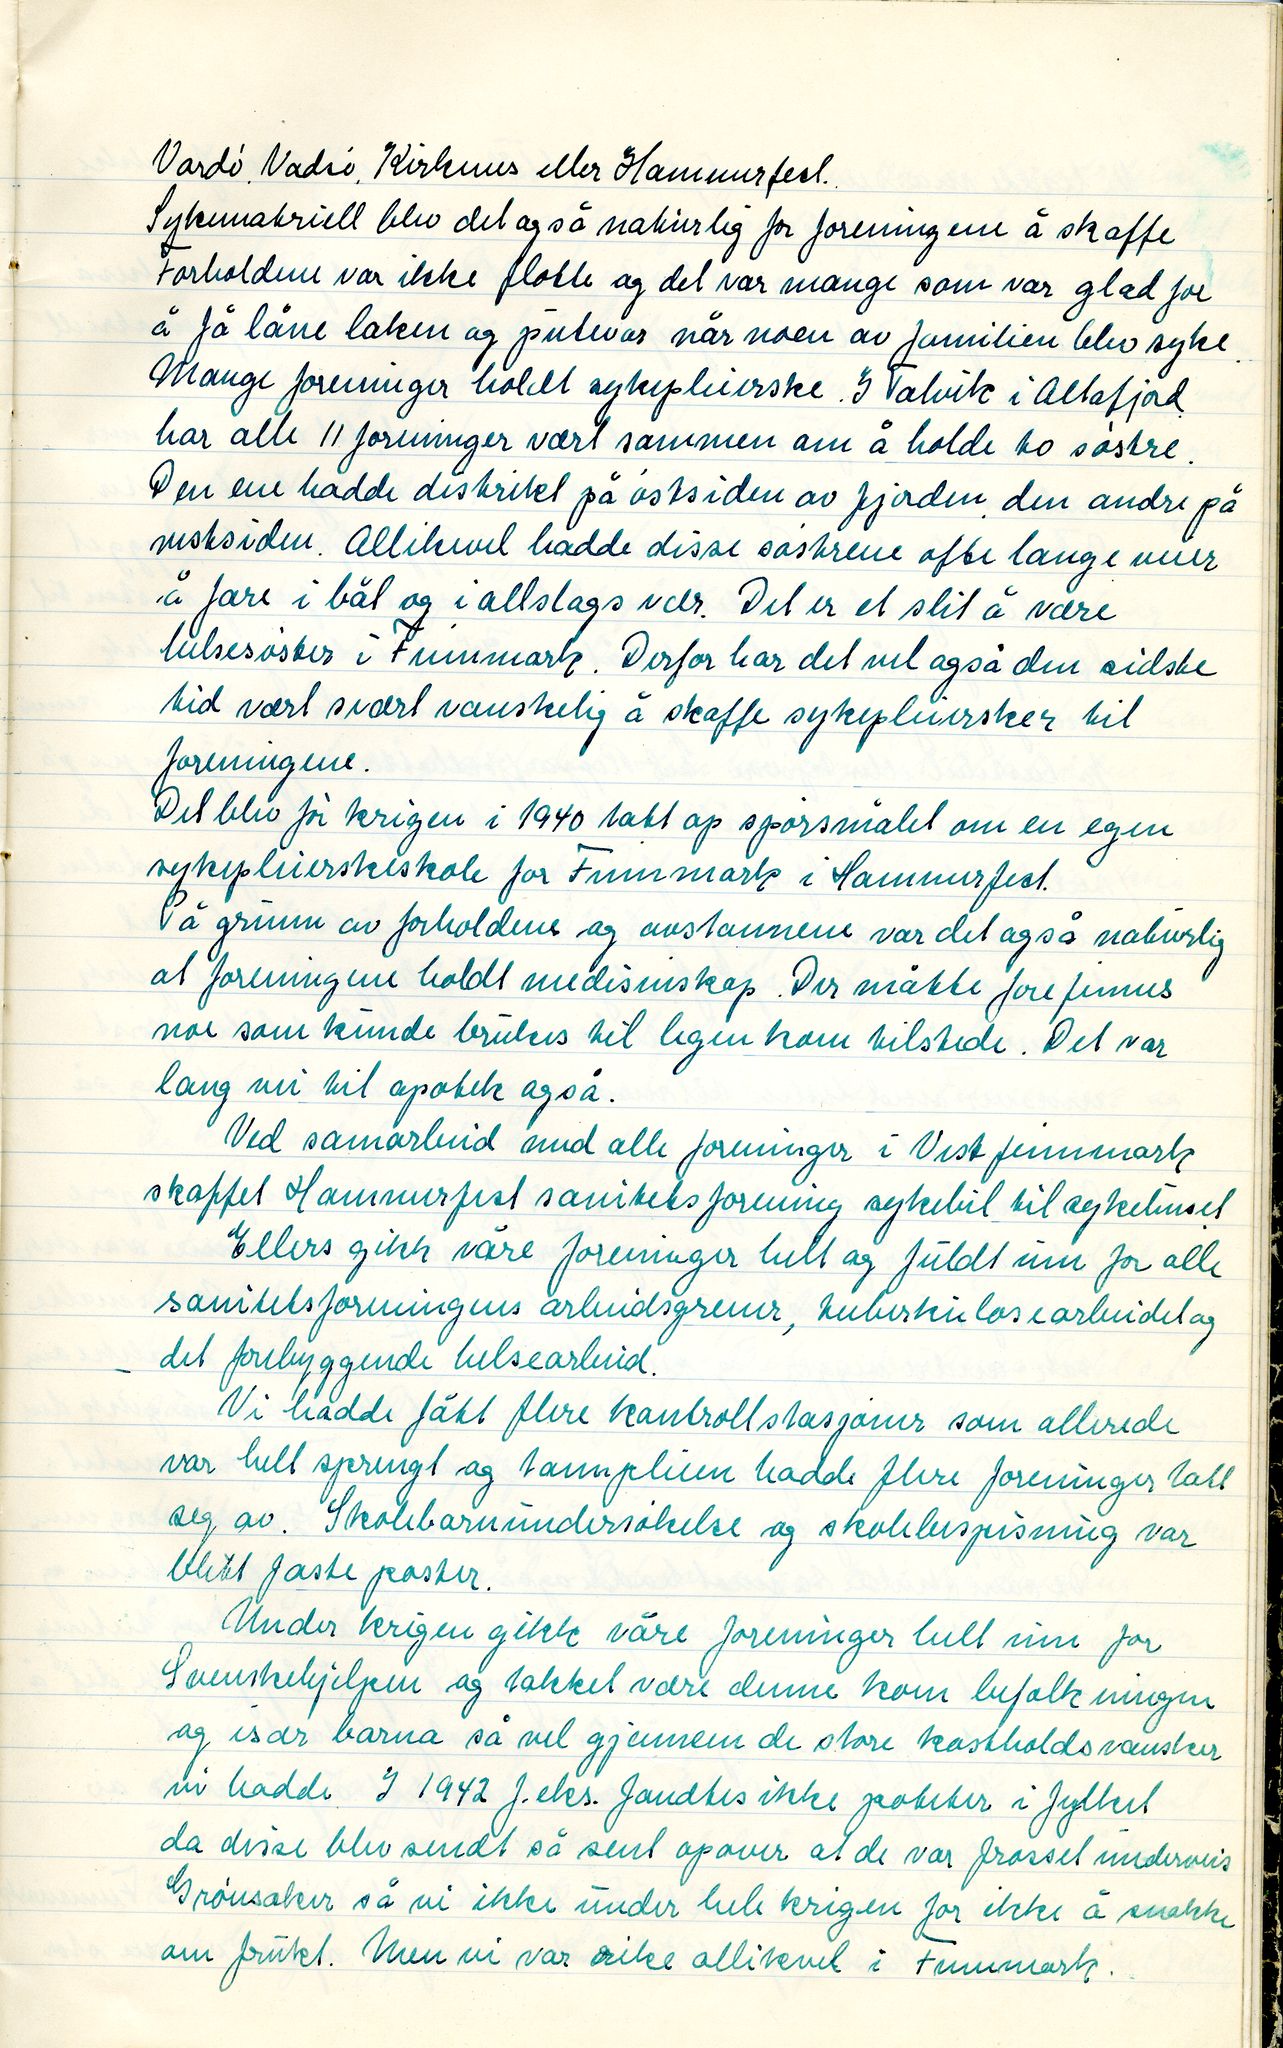 Vardö, Vadsö, Kirkenes eller Hammerfest.
Sykemateriell blev det også naturlig for foreningene å skaffe
Forholdene var ikke flotte og det var mange som var glad for
å få låne laken og putevar når noen av familien blev syke.
Mange foreninger holdt sykepleierske. I Talvik i Altafjord
har alle 11 foreninger vært sammen om å holde to söstre.
Den ene hadde distrikt på östsiden av fjorden, den andre på
vestsiden. Allikevel hadde disse söstrene ofte lange veier
å fare i båt og i allslags vær. Det er et slit å være
helsesöster i Finnmark. Derfor har det vel også den sidste
tid vært svært vanskelig å skaffe sykepleiersker til
foreningene.
Det blev för krigen i 1940 tatt op spörsmålet om en egen
sykepleierskeskole for Finnmark i Hammerfest.
På grunn av forholdene og avstannene var det også naturlig
at foreningene holdt medisinskap. Der måtte forefinnes
noe som kunde brukes til legen kom tilstede. Det var
lang vei til apotek også.
Ved samarbeid med alle foreninger i Vest finnmark
skaffet Hammerfest sanitetsforening sykebil til sykehuset
Ellers gikk våre foreninger helt og fuldt inn for alle
sanitetsforeningens arbeidsgrener, tuberkulosearbeidet og
det forebyggende helsearbeid.
Vi hadde fått flere kontrollstasjoner som allerede
var helt sprengt og tannpleien hadde flere foreninger tatt
seg av. Skolebarnundersökelse og skolebespisning var
blitt faste poster.
Under krigen gikk våre foreninger helt inn for
Svenskehjelpen og takket være denne kom befolkningen
og især barna så vel gjennem de store kostholdsvansker
vi hadde. I 1942 f.eks. fandtes ikke poteter i fylket
da disse blev sendt så sent opover at de var frosset underveis
Grönsaker så vi ikke under hele krigen for ikke å snakke
om frukt. Men vi var rike allikevel i Finnmark.